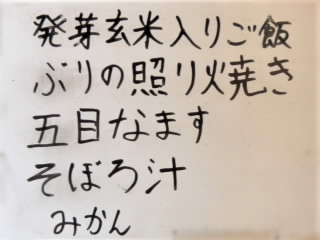 発芽玄米入りご飯
ぶりの照り火焼き
五目なます
そぼろ汁
みかん